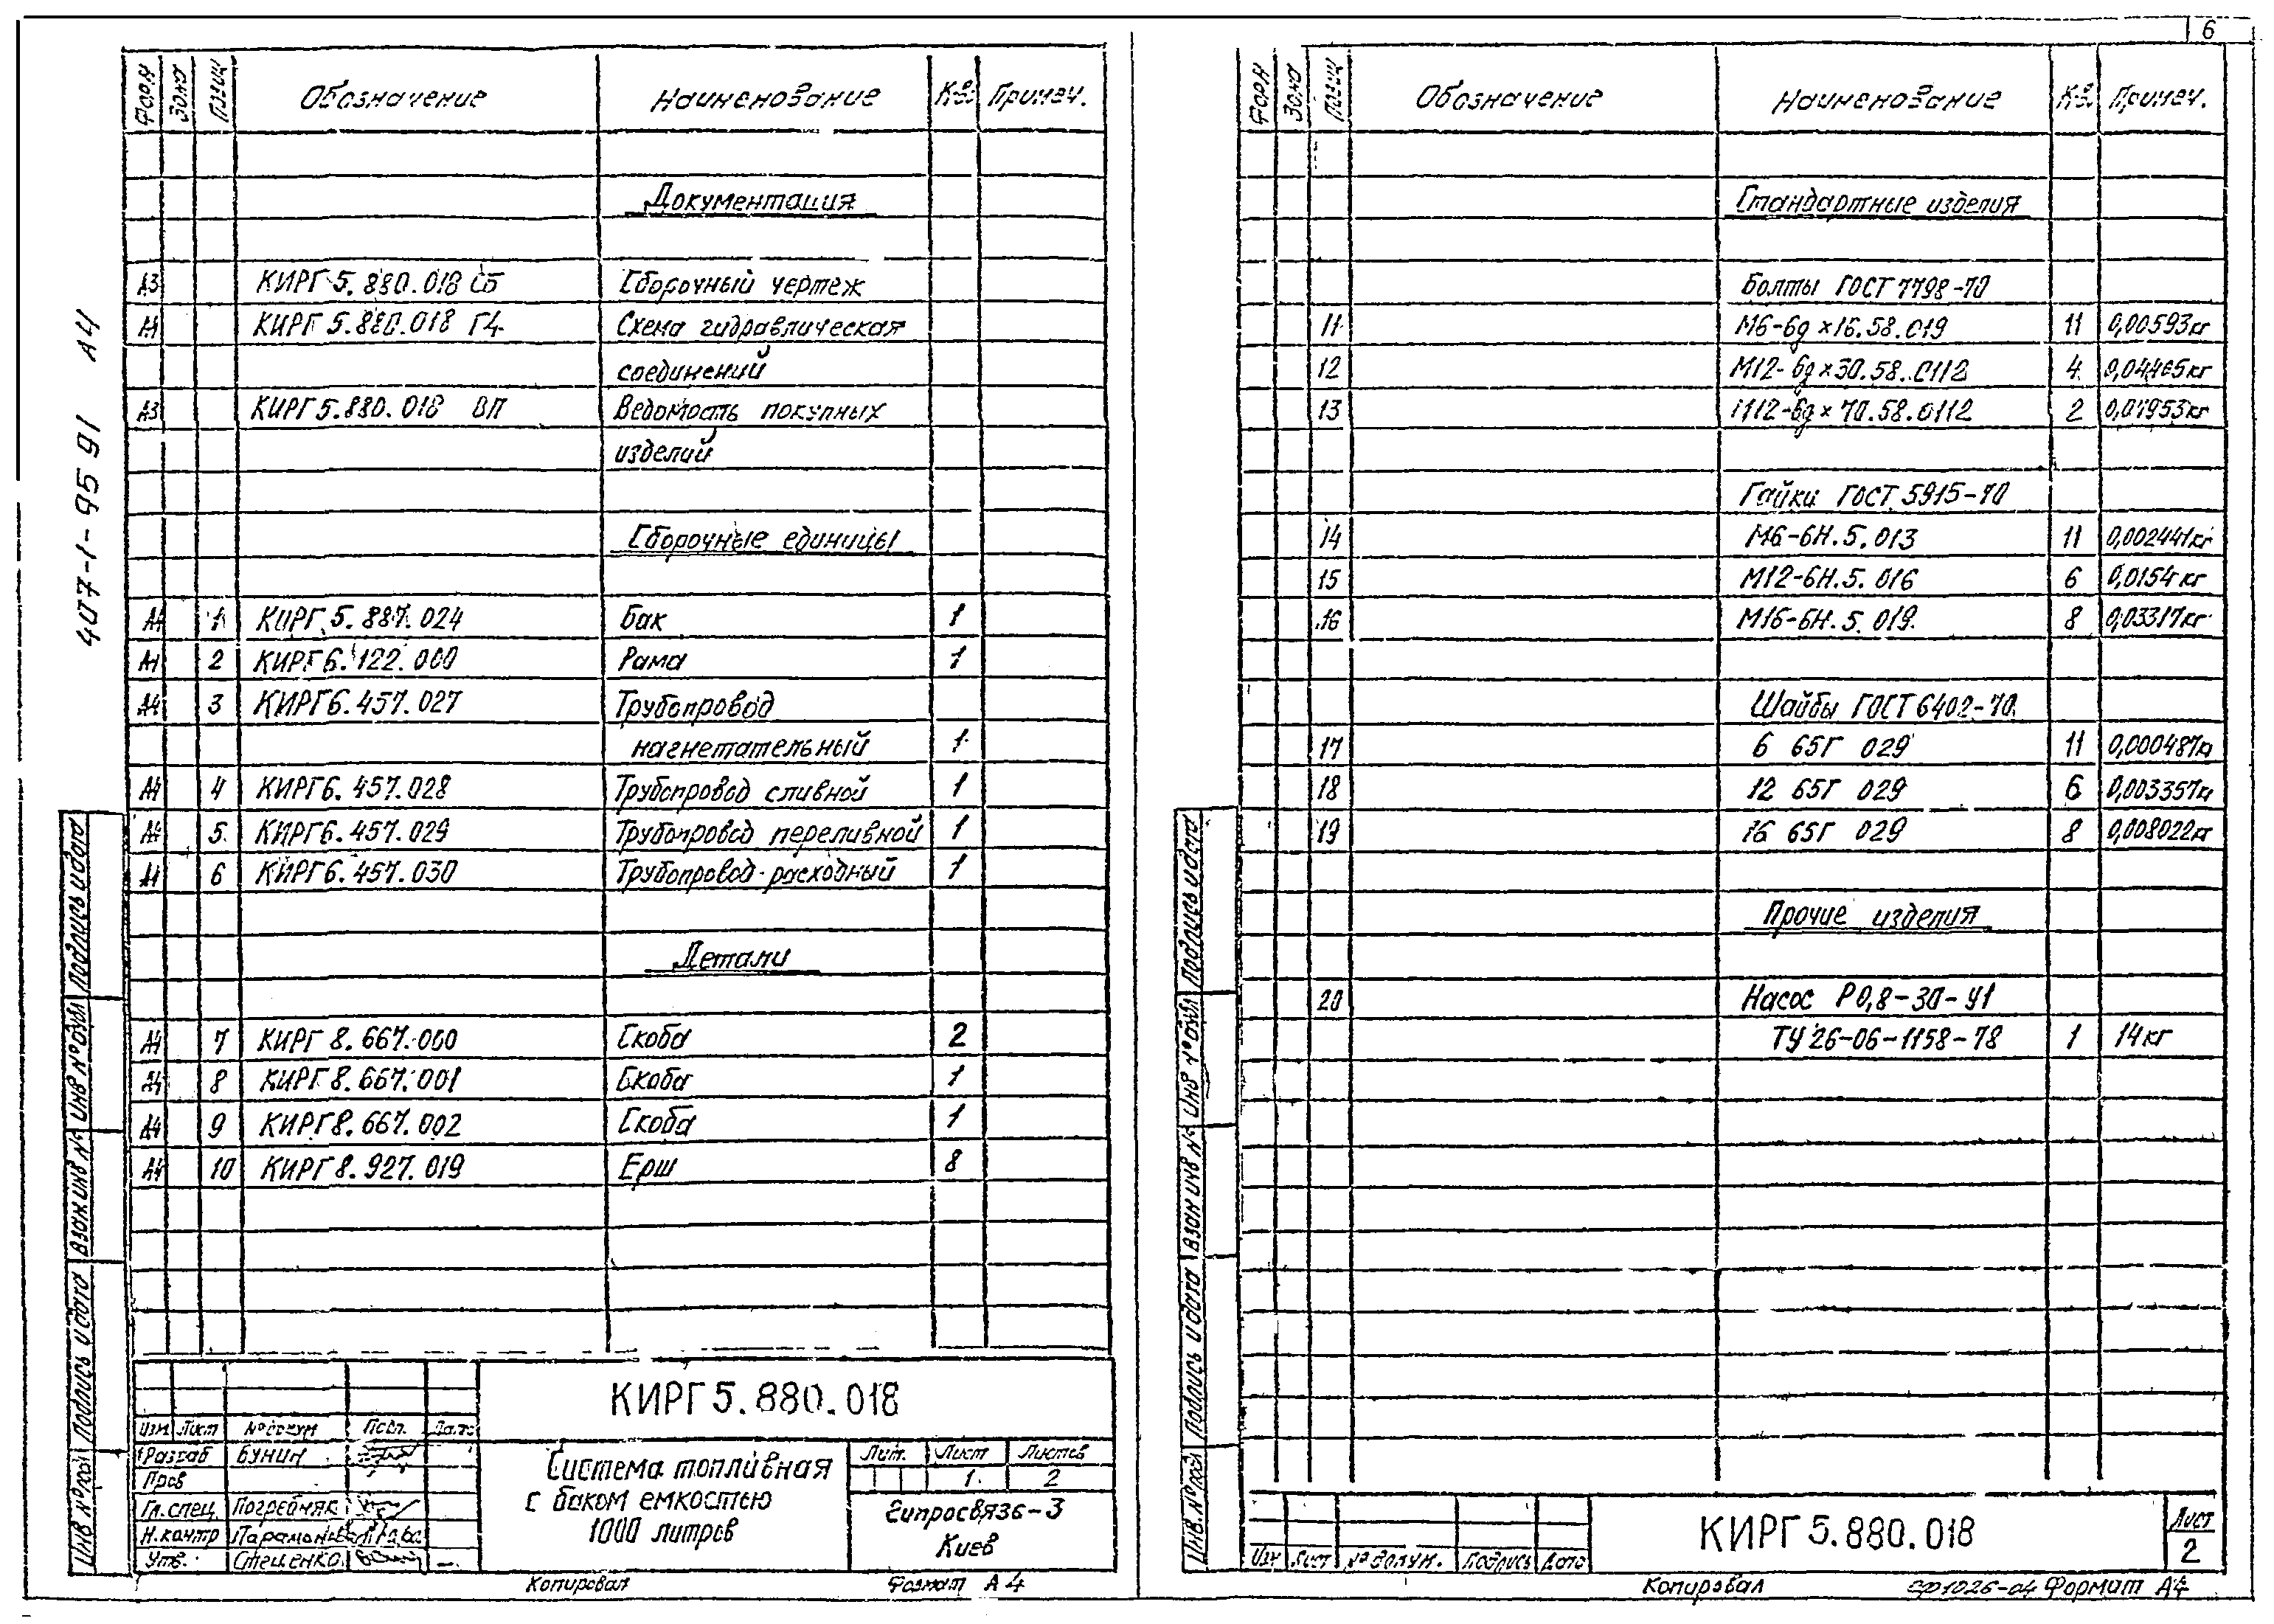 6
407-1-95 91 А4
Форм Зона Позиц Обозначение Наименование К-в. Примеч.
Документация
А3 КИРГ 5.880.018 СБ Сборочный чертеж
А4 КИРГ 5.880.018 Г4 Схема гидравлическая
соединений
А3 КИРГ 5.880.018 ВП Ведомость покупных
изделий
Сборочные единицы
А4 1 КИРГ 5.887.024 Бак 1
А4 2 КИРГ 6.122.000 Рама 1
А4 3 КИРГ 6.457.027 Трубопровод
нагнетательный 1
А4 4 КИРГ 6.457.028 Трубопровод сливной 1
А4 5 КИРГ 6.457.029 Трубопровод переливной 1
А4 6 КИРГ 6.457.030 Трубопровод расходный 1
Детали
А4 7 КИРГ 8.667.000 Скоба 2
А4 8 КИРГ 8.667.001 Скоба 1
А4 9 КИРГ 8.667.002 Скоба 1
А4 10 КИРГ 8.927.019 Ерш 8
Инв № подл Подпись и дата Взам инв № Инв № дубл Подпись и дата
КИРГ 5.880.018
Изм Лист № докум Подп. Дата
Разраб Бунин
Пров
Гл. спец. Погребняк
Н. контр
Утв. Стеценко
Система топливная
с баком емкостью
1000 литров
Лит. Лист Листов
1 2
Гипросвязь-3
Киев
Копировал Формат А4
Форм Зона Позиц Обозначение Наименование К-в. Примеч.
Стандартные изделия
Болты ГОСТ 7798-70
11 М6-6g×16.58.019 11 0,00593кг
12 М12-6g×30.58.0112 4 0,04465кг
13 М12-6g×70.58.0112 2
Гайки ГОСТ 5915-70
14 М6-6Н.5.013 11 0,002441кг
15 М12-6Н.5.016 6 0,0154кг
16 М16-6Н.5.019 8 0,03317кг
Шайбы ГОСТ 6402-70
17 6 65Г 029 11 0,000487кг
18 12 65Г 029 6 0,003357кг
19 16 65Г 029 8 0,008022кг
Прочие изделия
20 Насос Р0,8-30-У1
ТУ 26-06-1158-78 1 14кг
Инв. № подл Подпись и дата Взам инв № Инв № дубл Подпись и дата
Изм Лист № докум. Подпись Дата
КИРГ 5.880.018
Лист
2
Копировал Формат А4